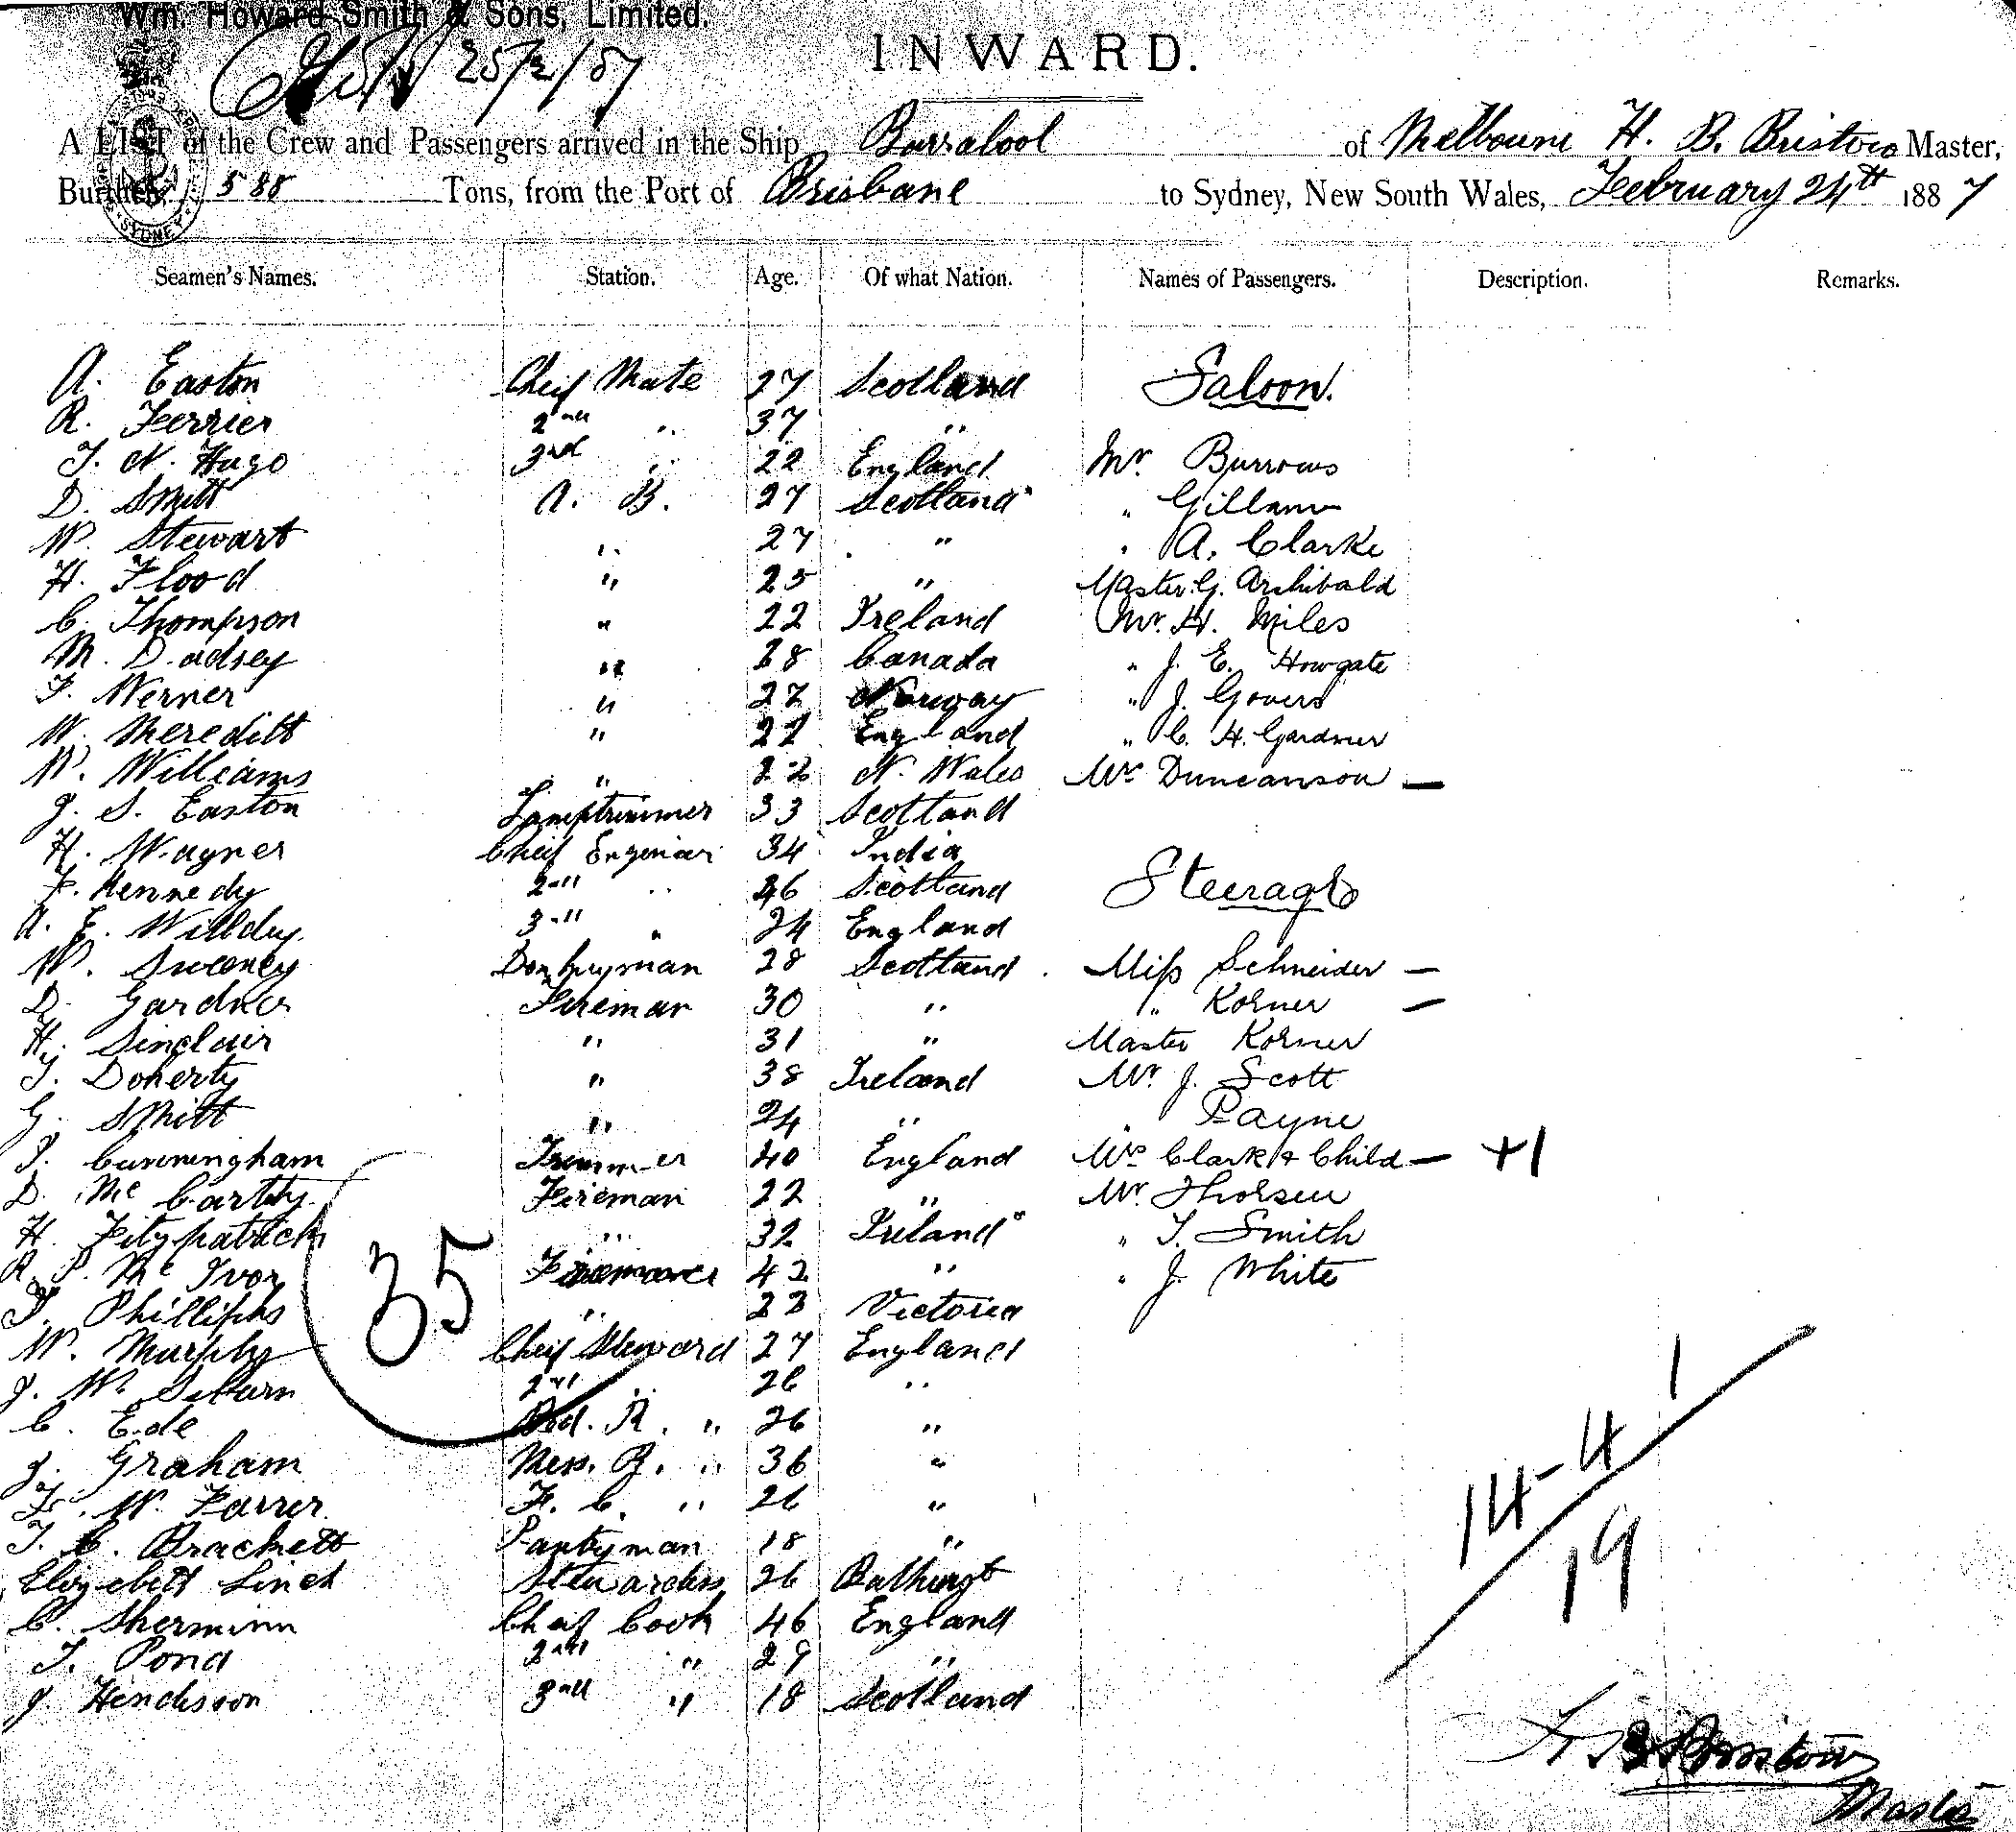 Wm. Howard Smith & Sons, Limited.
25/2/87
INWARD.
A LIST of the Crew and Passengers arrived in the Ship Burrabool of Melbourne H. B. Bristow Master,
Burthen, 588 Tons, from the Port of Brisbane to Sydney, New South Wales, February 24th 1887
Seamen's Names. Station. Age. Of what Nation. Names of Passengers. Description. Remarks.
A. Easton Cheif Mate 27 Scotland Saloon.
R. Ferrier 2nd " 37 "
T. N. Hugo 3rd " 22 England Mr. Burrows
D. Smith A. B. 27 Scotland " Gillam
W. Stewart " 27 " " A. Clarke
H. Flood " 25 " Master G. Archibald
C. Thompson " 22 Ireland Mr. H. Miles
M. Dadsey " 28 Canada " J. E. Howgate
F. Werner " 27 Norway " J. Govers
W. Meredith " 22 England " C. H. Gardner
W. Williams " 22 N. Wales Mrs Duncanson —
J. S. Easton Lamptrimmer 33 Scotland
H. Wagner Cheif Enginier 34 India
F. Kennedy 2nd " 26 Scotland Steerage
A. E. Willdey 3rd " 24 England
W. Sweeney Donkeyman 28 Scotland Miss Schneider —
D. Gardner Fireman 30 " " Korner —
Hy Sinclair " 31 " Master Korner
J. Doherty " 38 Ireland Mr J. Scott
G. Smith " 24 " " Payne
J. Cunningham Trimmer 40 England Mrs Clark & Child — +1
D. McCarthy Fireman 22 " Mr. Thorsen
H. Fitzpatrick " 32 Ireland " T. Smith
R. P. McIvor 42 " " J. White
35
J. Phillipps " 23 Victoria
W. Murphy Cheif Steward 27 England
J. W. 2nd " 26 "
C. Ede Bed. R. " 26 "
J. Graham Mess. R. " 36 "
F. W. Farrer F. C. " 26 "
T. C. Brackett Pantryman 18 "
Elizebeth Linch Stewardess 26 Bathurst
C. Sherminn Cheif Cook 46 England
T. Pond 2nd " 29 "
J Henderson 3rd " 18 Scotland
14-4 1
19
H B Bristow
Master